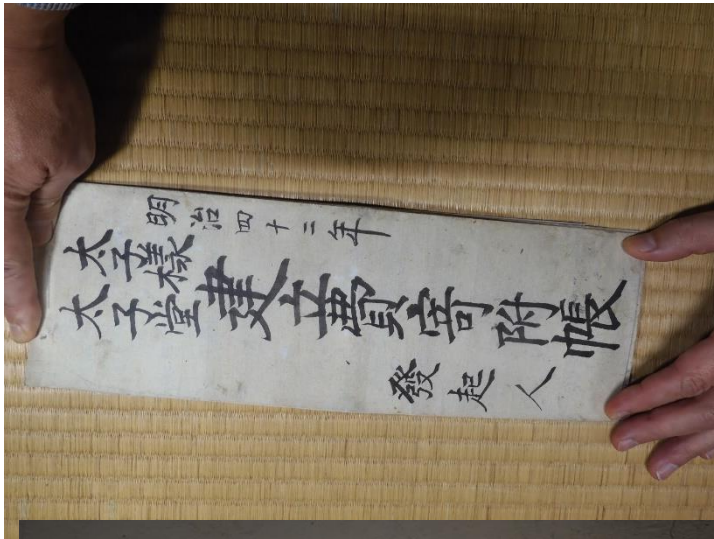 明治四十二年
太子樣
太子堂
建立費寄附帳
發起人